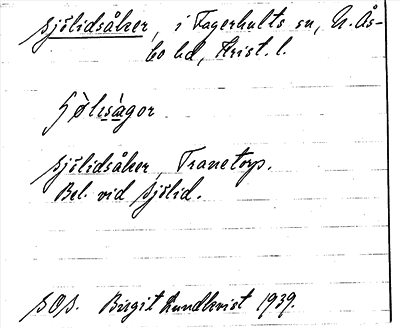 Sjölidsåker, i Fagerhults sn, N. Ås-
bo hd, Krist. l.
Sjölidsåker, Tranetorp.
Bel. vid Sjölid.
SOS. Birgit Lundkvist 1939.